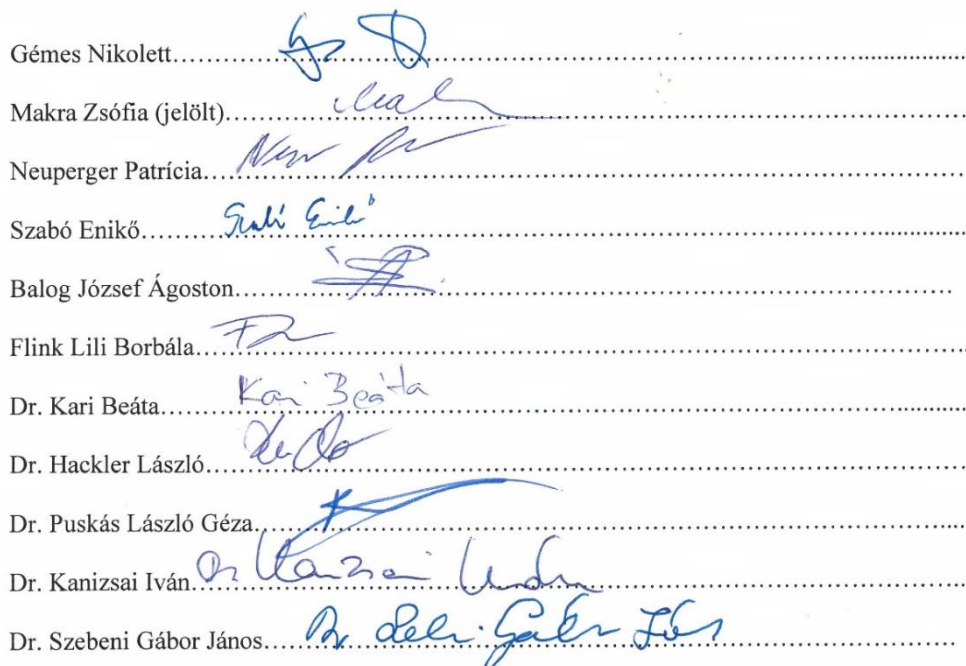 Gémes Nikolett
Makra Zsófia (jelölt)
Neuperger Patrícia
Szabó Enikő
Balog József Ágoston
Flink Lili Borbála
Dr. Kari Beáta Kari Beáta
Dr. Hackler László
Dr. Puskás László Géza
Dr. Kanizsai Iván Dr. Kanizsai
Dr. Szebeni Gábor János Dr. Gábor